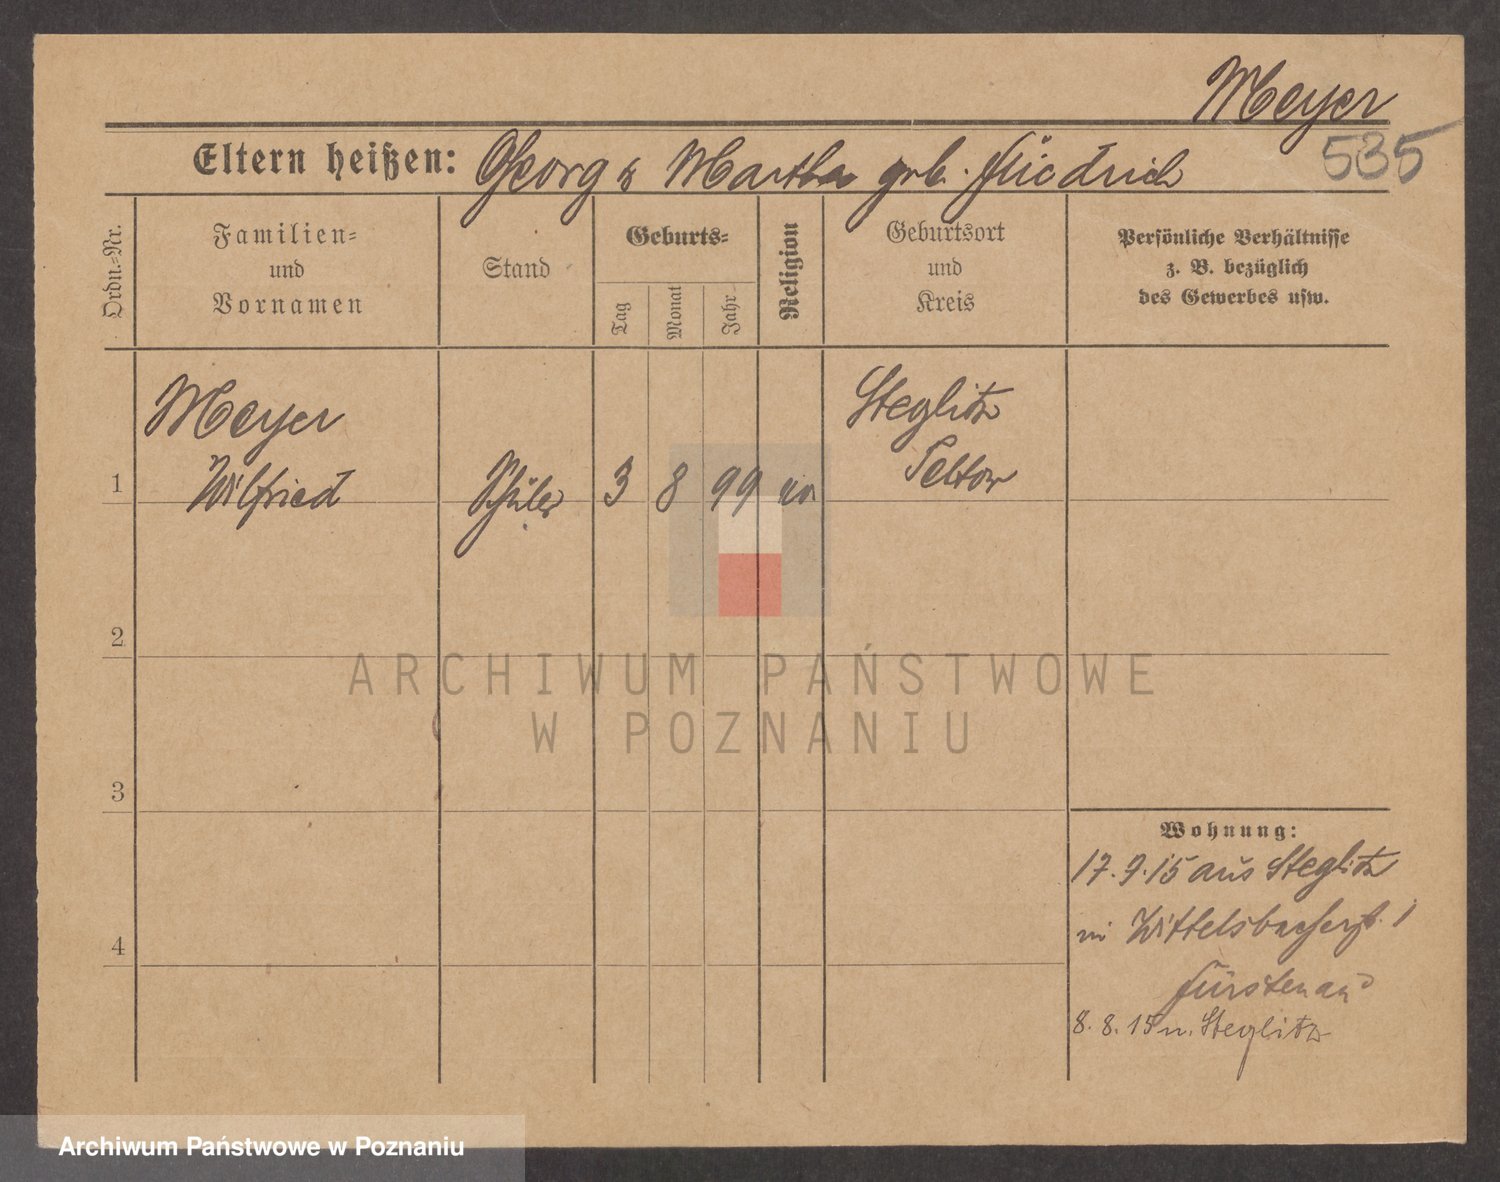 Meyer
535
Eltern heißen: Georg & Martha geb. Friedrich
Ordn.-Nr.
Familien-
und
Vornamen
Stand
Geburts-
Tag
Monat
Jahr
Religion
Geburtsort
und
Kreis
Persönliche Verhältnisse
z. B. bezüglich
des Gewerbes usw.
Meyer
Wilfried
Schüler
3 8 99
Steglitz
Teltow
1
2
3
4
Wohnung:
17.7.15 aus Steglitz
in Wittelsbacherst. 1
Fürstenau
8.8.15 n. Steglitz
ARCHIWUM PAŃSTWOWE
W POZNANIU
Archiwum Państwowe w Poznaniu